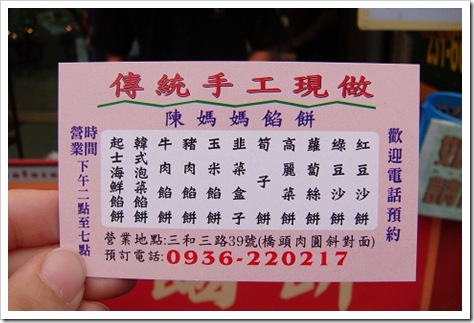 傳統手工現做
陳媽媽餡餅
歡迎電話預約
紅豆沙餅
綠豆沙餅
蘿蔔絲餅
高麗菜餅
筍子餅
韭菜盒子
玉米餡餅
豬肉餡餅
牛肉餡餅
韓式泡菜餡餅
起士海鮮餡餅
營業時間
下午二點至七點
營業地點:三和三路39號(橋頭肉圓斜對面)
預訂電話:0936-220217
餡餅